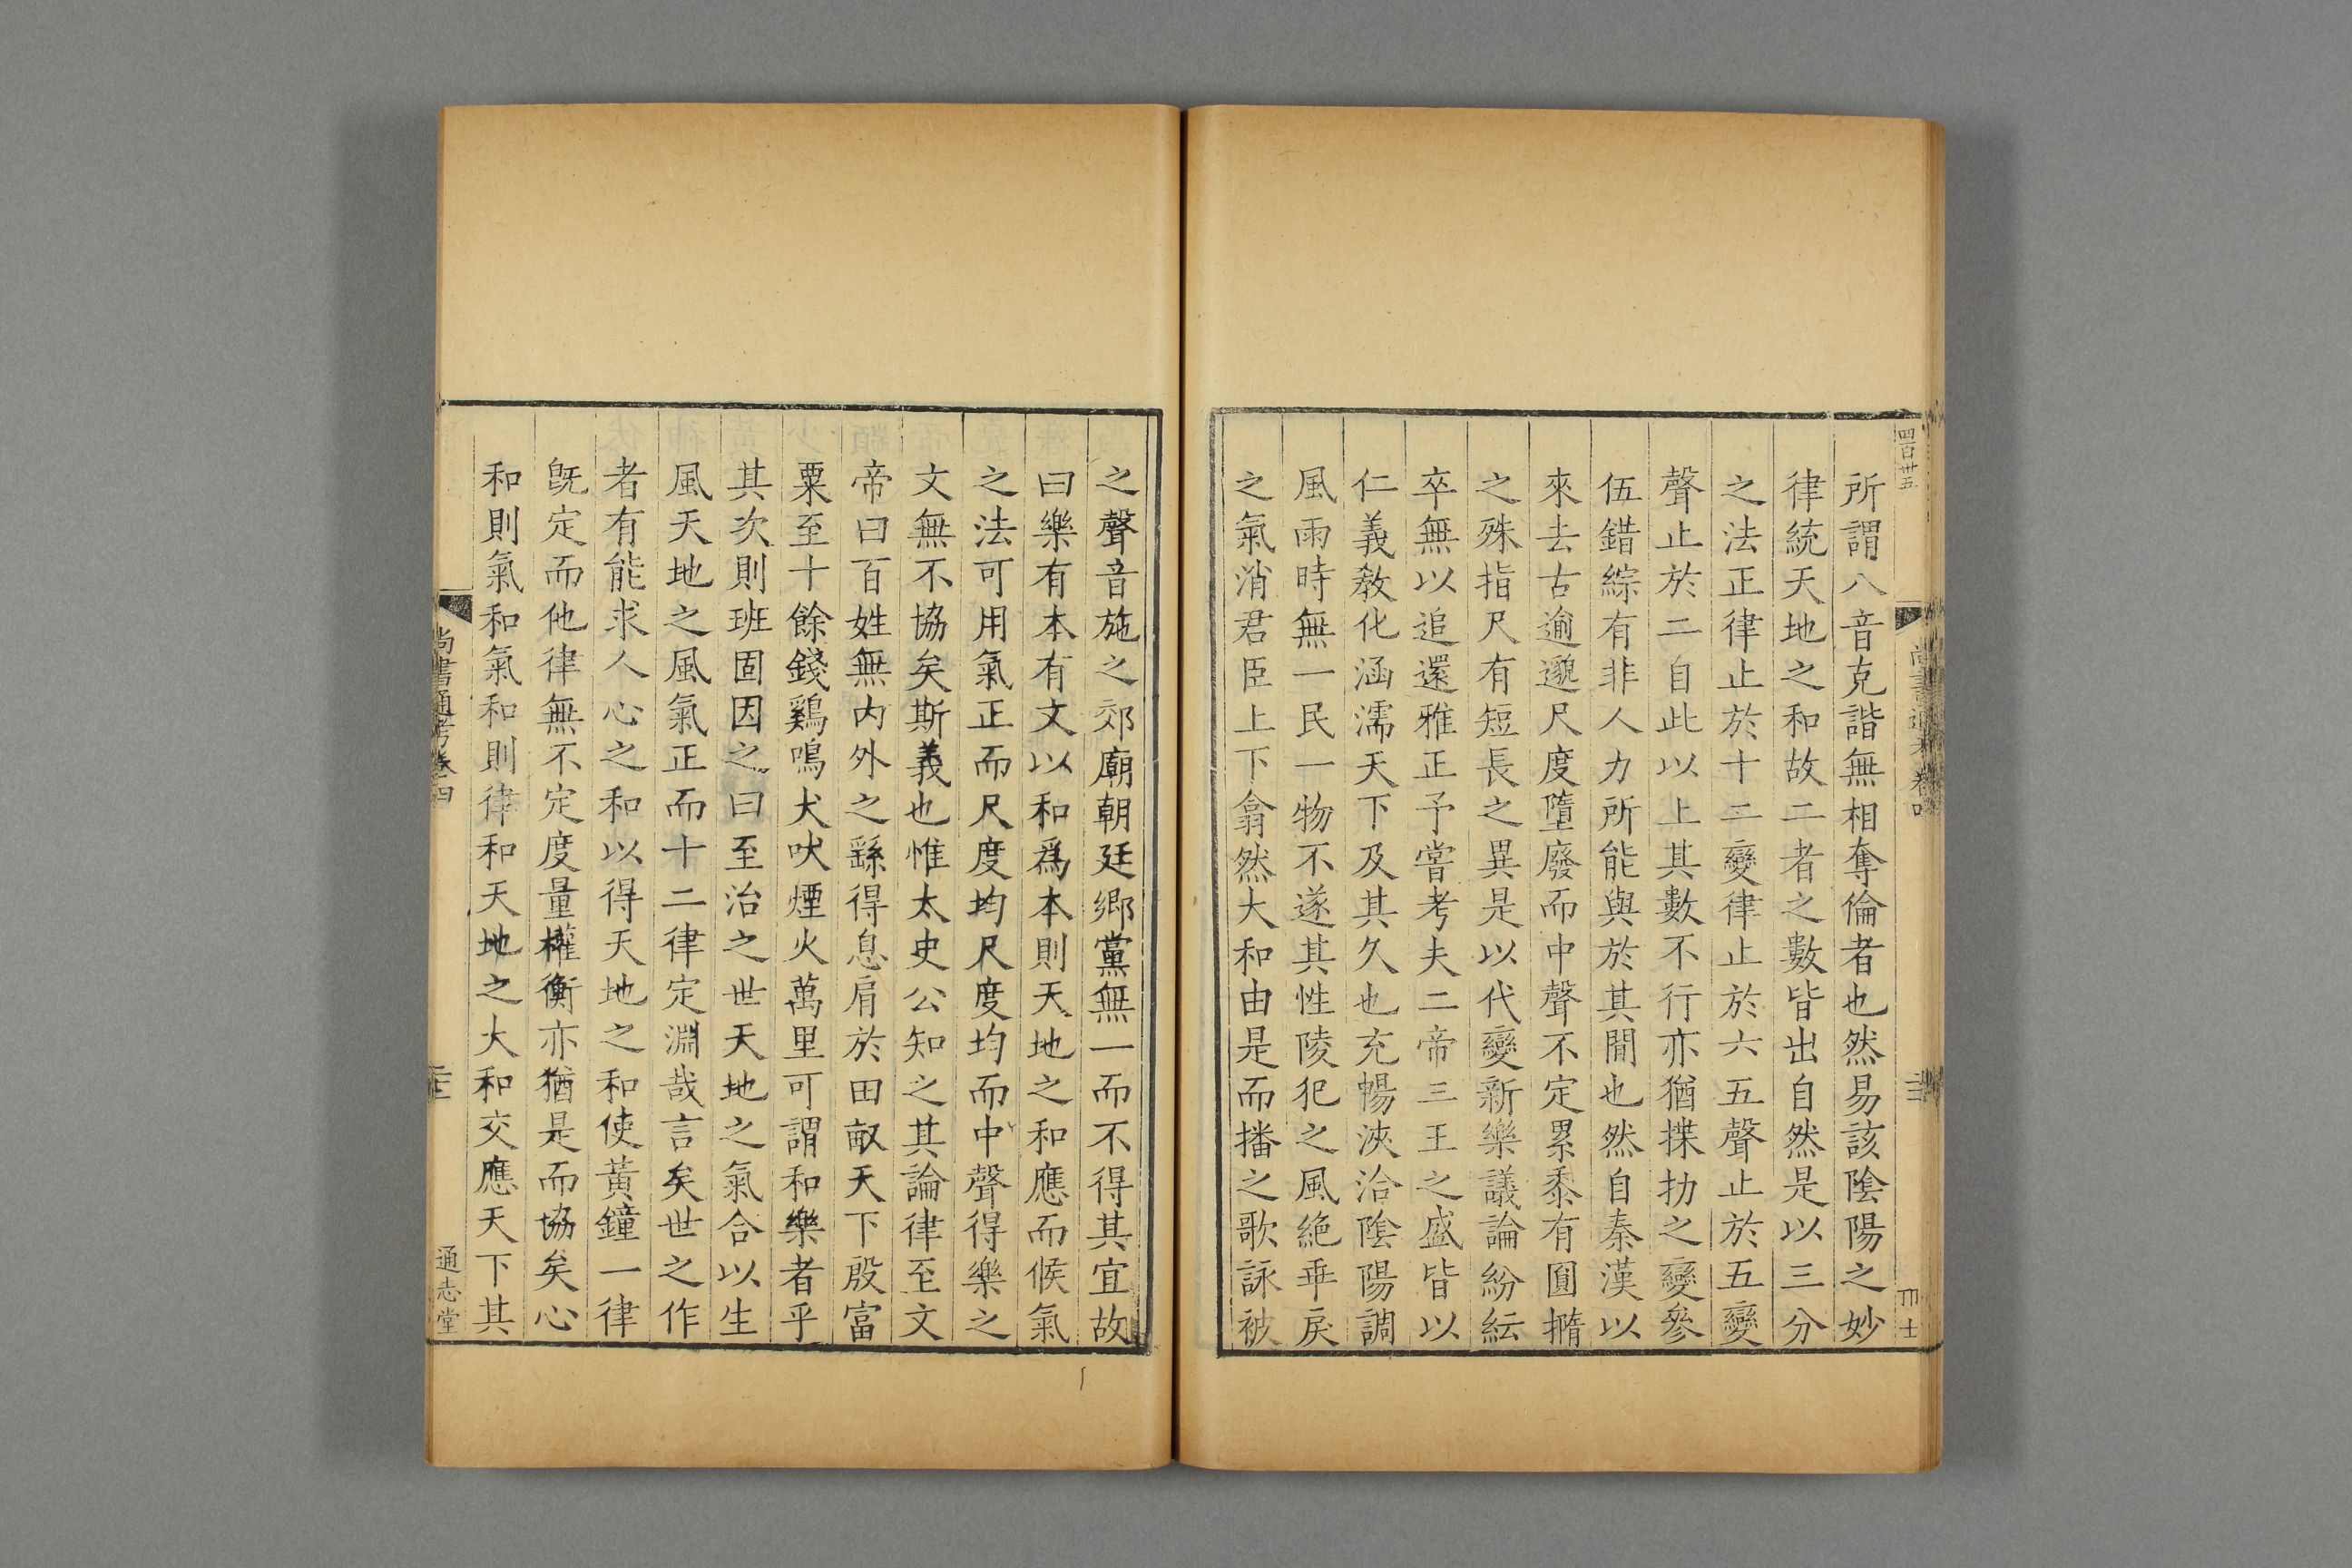 四百卅五
尚書通考卷四
所謂八音克諧無相奪倫者也然易該陰陽之妙
律統天地之和故二者之數皆出自然是以三分
之法正律止於十二變律止於六五聲止於五變
聲止於二自此以上其數不行亦猶揲扐之變參
伍錯綜有非人力所能與於其間也然自秦漢以
來去古逾邈尺度墮廢而中聲不定累黍有圓撱
之殊指尺有短長之異是以代變新樂議論紛紜
卒無以追還雅正予嘗考夫二帝三王之盛皆以
仁義教化涵濡天下及其久也充暢浹洽陰陽調
風雨時無一民一物不遂其性陵犯之風絕乖戾
之氣消君臣上下翕然大和由是而播之歌詠被
之聲音施之郊廟朝廷鄉黨無一而不得其宜故
曰樂有本有文以和爲本則天地之和應而候氣
之法可用氣正而尺度均尺度均而中聲得樂之
文無不協矣斯義也惟太史公知之其論律至文
帝曰百姓無內外之繇得息肩於田畝天下殷富
粟至十餘錢鷄鳴犬吠煙火萬里可謂和樂者乎
其次則班固因之曰至治之世天地之氣合以生
風天地之風氣正而十二律定淵哉言矣世之作
者有能求人心之和以得天地之和使黃鐘一律
旣定而他律無不定度量權衡亦猶是而協矣心
和則氣和氣和則律和天地之大和交應天下其
尚書通考卷四
通志堂